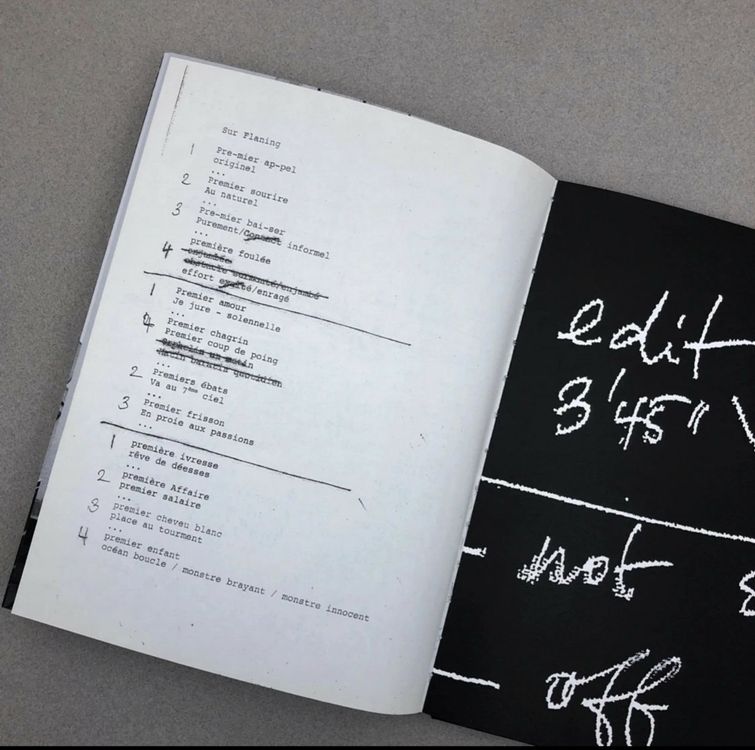 Sur Flaning
1 Pre-mier ap-pel
originel
...
2 Premier sourire
Au naturel
...
3 Pre-mier bai-ser
Purement/Connect informel
...
4 première foulée
enjambée
obstacle surmonté/enjambé
effort exalté/enragé
1 Premier amour
Je jure - solennelle
...
4 Premier chagrin
Premier coup de poing
orphelin un matin
Matin baratin quotidien
...
2 Premiers ébats
Va au 7ème ciel
...
3 Premier frisson
En proie aux passions
...
1 première ivresse
rêve de déesses
...
2 première Affaire
premier salaire
...
3 premier cheveu blanc
place au tourment
...
4 premier enfant
océan boucle / monstre brayant / monstre innocent
edit
3'45"
not
off